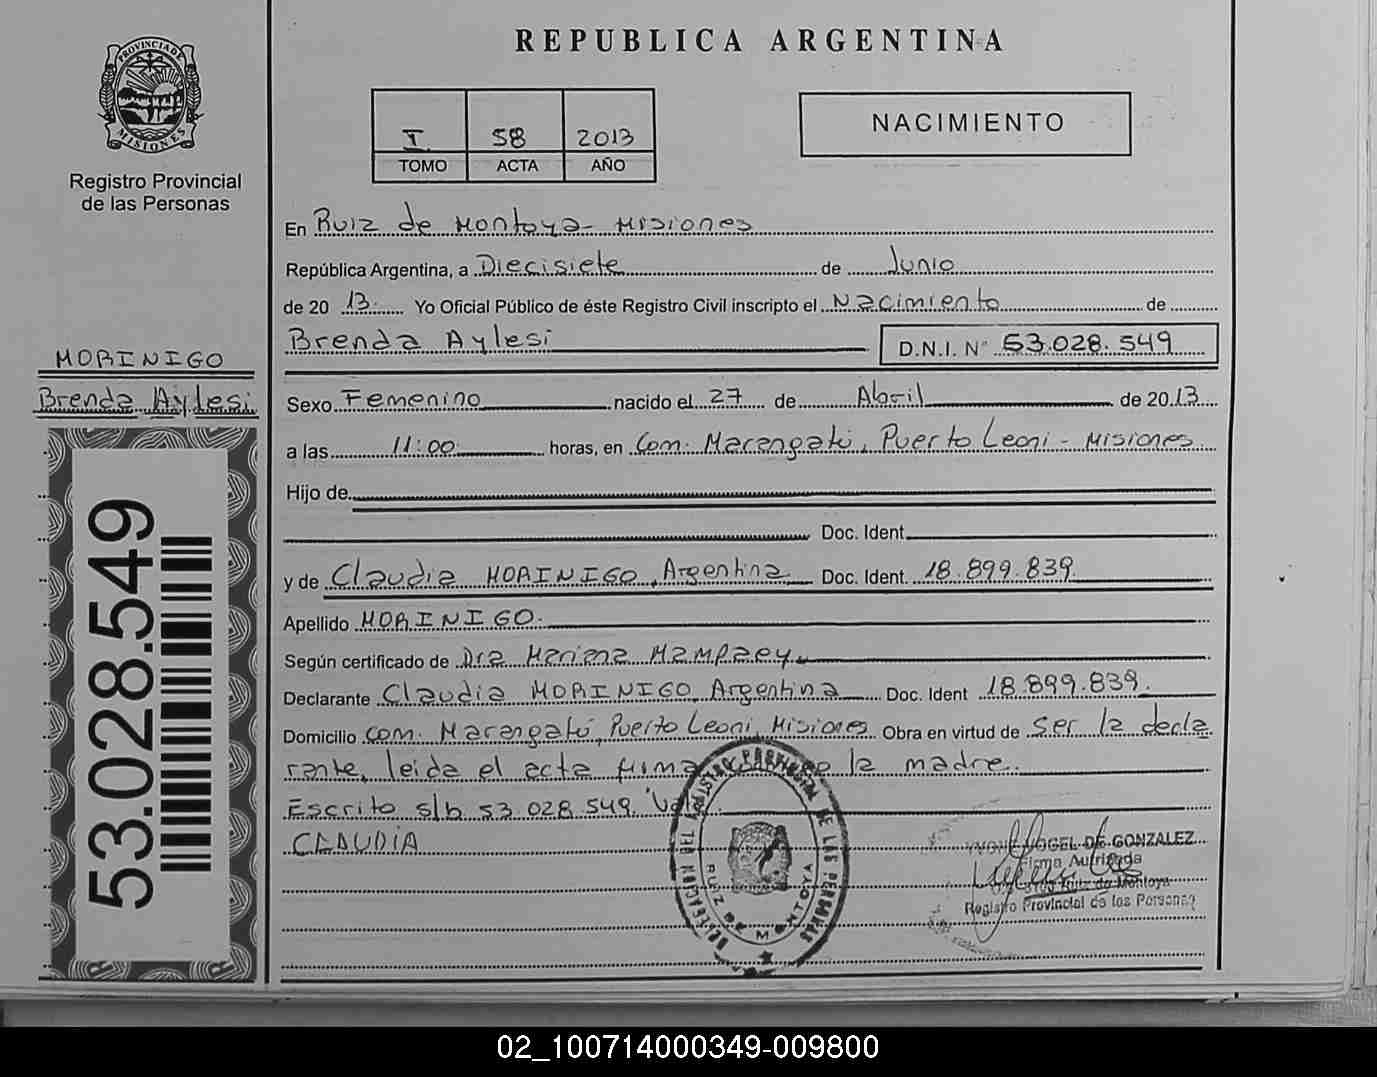 REPUBLICA ARGENTINA
PROVINCIA DE MISIONES
Registro Provincial
de las Personas
I 58 2013
TOMO ACTA AÑO
NACIMIENTO
En Ruiz de Montoya - Misiones
República Argentina, a Diecisiete de Junio
de 20 13. Yo Oficial Público de éste Registro Civil inscripto el Nacimiento de
Brenda Aylesi D.N.I. N° 53.028.549
MORINIGO
Brenda Aylesi
53.028.549
Sexo Femenino nacido el 27 de Abril de 2013
a las 11:00 horas, en Com. Marangatú, Puerto Leoni - Misiones
Hijo de
Doc. Ident
y de Claudia MORINIGO, Argentina Doc. Ident. 18.899.839
Apellido MORINIGO.
Según certificado de Dra Mariana Mampaey
Declarante Claudia MORINIGO, Argentina Doc. Ident 18.899.839.
Domicilio Com. Marangatú, Puerto Leoni, Misiones Obra en virtud de Ser la decla
rante, leida el acta firma la madre.
Escrito s/b 53.028.549. Vale.
CLAUDIA
DELEGACION DEL REGISTRO PROVINCIAL DE LAS PERSONAS
RUIZ DE MONTOYA
YVONE VOGEL DE GONZALEZ
Firma Autorizada
Ruiz de Montoya
Registro Provincial de las Personas
02_100714000349-009800